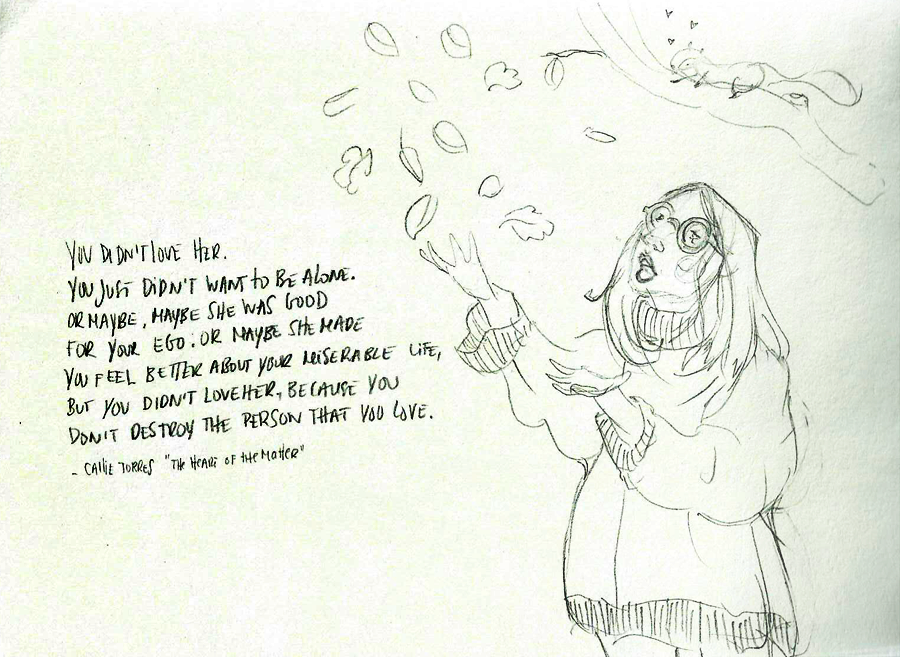 YOU DIDN'T LOVE HER.
YOU JUST DIDN'T WANT TO BE ALONE.
OR MAYBE, MAYBE SHE WAS GOOD
FOR YOUR EGO. OR MAYBE SHE MADE
YOU FEEL BETTER ABOUT YOUR MISERABLE LIFE,
BUT YOU DIDN'T LOVE HER, BECAUSE YOU
DON'T DESTROY THE PERSON THAT YOU LOVE.
- CALLIE TORRES "THE HEART OF THE MATTER"